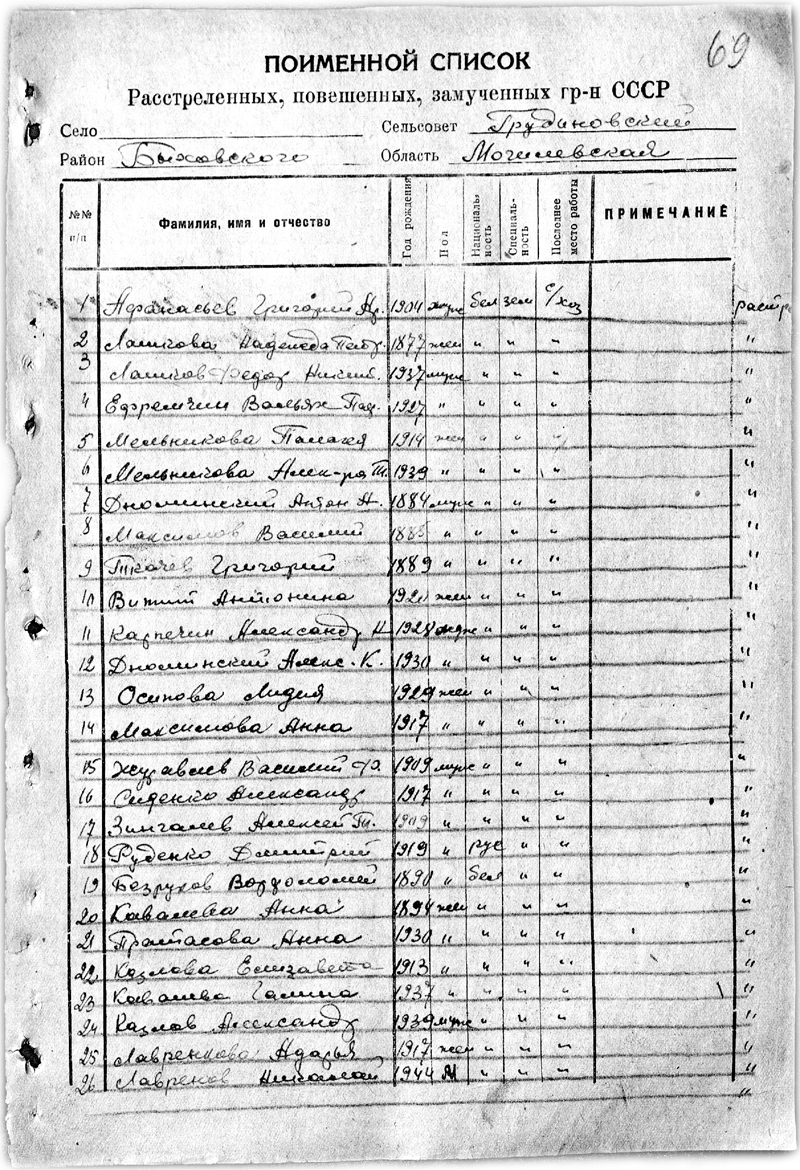 69
ПОИМЕННОЙ СПИСОК
Расстреленных, повешенных, замученных гр-н СССР
Село Сельсовет Грудиновский
Район Быховского Область Могилевская
№№ п/п Фамилия, имя и отчество Год рождения Пол Националь-ность Специаль-ность Последнее место работы ПРИМЕЧАНИЕ
1 Афанасьев Григорий 1904 муж бел зем с/хоз расстр
2 Надежда Петр. 1877 жен " " " "
3 Федор 1937 муж " " " "
4 1927 " " " " "
5 Мельникова 1914 жен " " " "
6 Мельникова Алек-ра 1939 " " " " "
7 Антон 1884 муж " " " "
8 Максимов Василий 1885 " " " " "
9 Ткачев Григорий 1889 " " " " "
10 Антонина жен " " " "
11 Карпечин Александр 1928 муж " " " "
12 Алекс. К. 1930 " " " " "
13 Осипова Лидия 1929 жен " " " "
14 Максимова Анна 1917 " " " " "
15 Журавлев Василий 1909 муж " " " "
16 Сиденко Александр 1917 " " " " "
17 Алексей 1909 " " " " "
18 Руденко Дмитрий 1919 " рус " " "
19 Безруков 1890 " бел " " "
20 Кавалева Анна 1894 жен " " " "
21 Пратасова Анна 1930 " " " " "
22 Козлова Елизавета 1913 " " " " "
23 Кавалева Галина 1937 " " " " "
24 Казлов Александр 1939 муж " " " "
25 Лавренкова 1917 жен " " " "
26 Лавренов Николай 1944 М " " " "
"